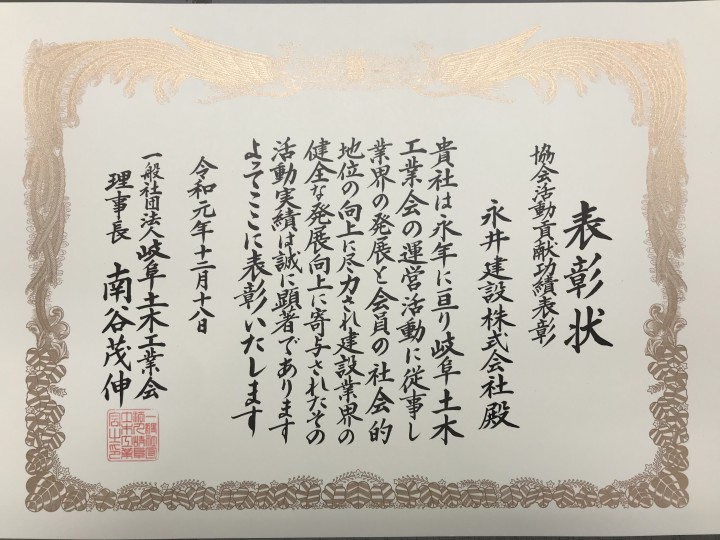 表彰状
協会活動貢献功績表彰
永井建設株式会社殿
貴社は永年に亘り岐阜土木
工業会の運営活動に従事し
業界の発展と会員の社会的
地位の向上に尽力され建設業界の
健全な発展向上に寄与されたその
活動実績は誠に顕著であります
よってここに表彰いたします
令和元年十二月十八日
一般社団法人岐阜土木工業会
理事長 南谷茂伸